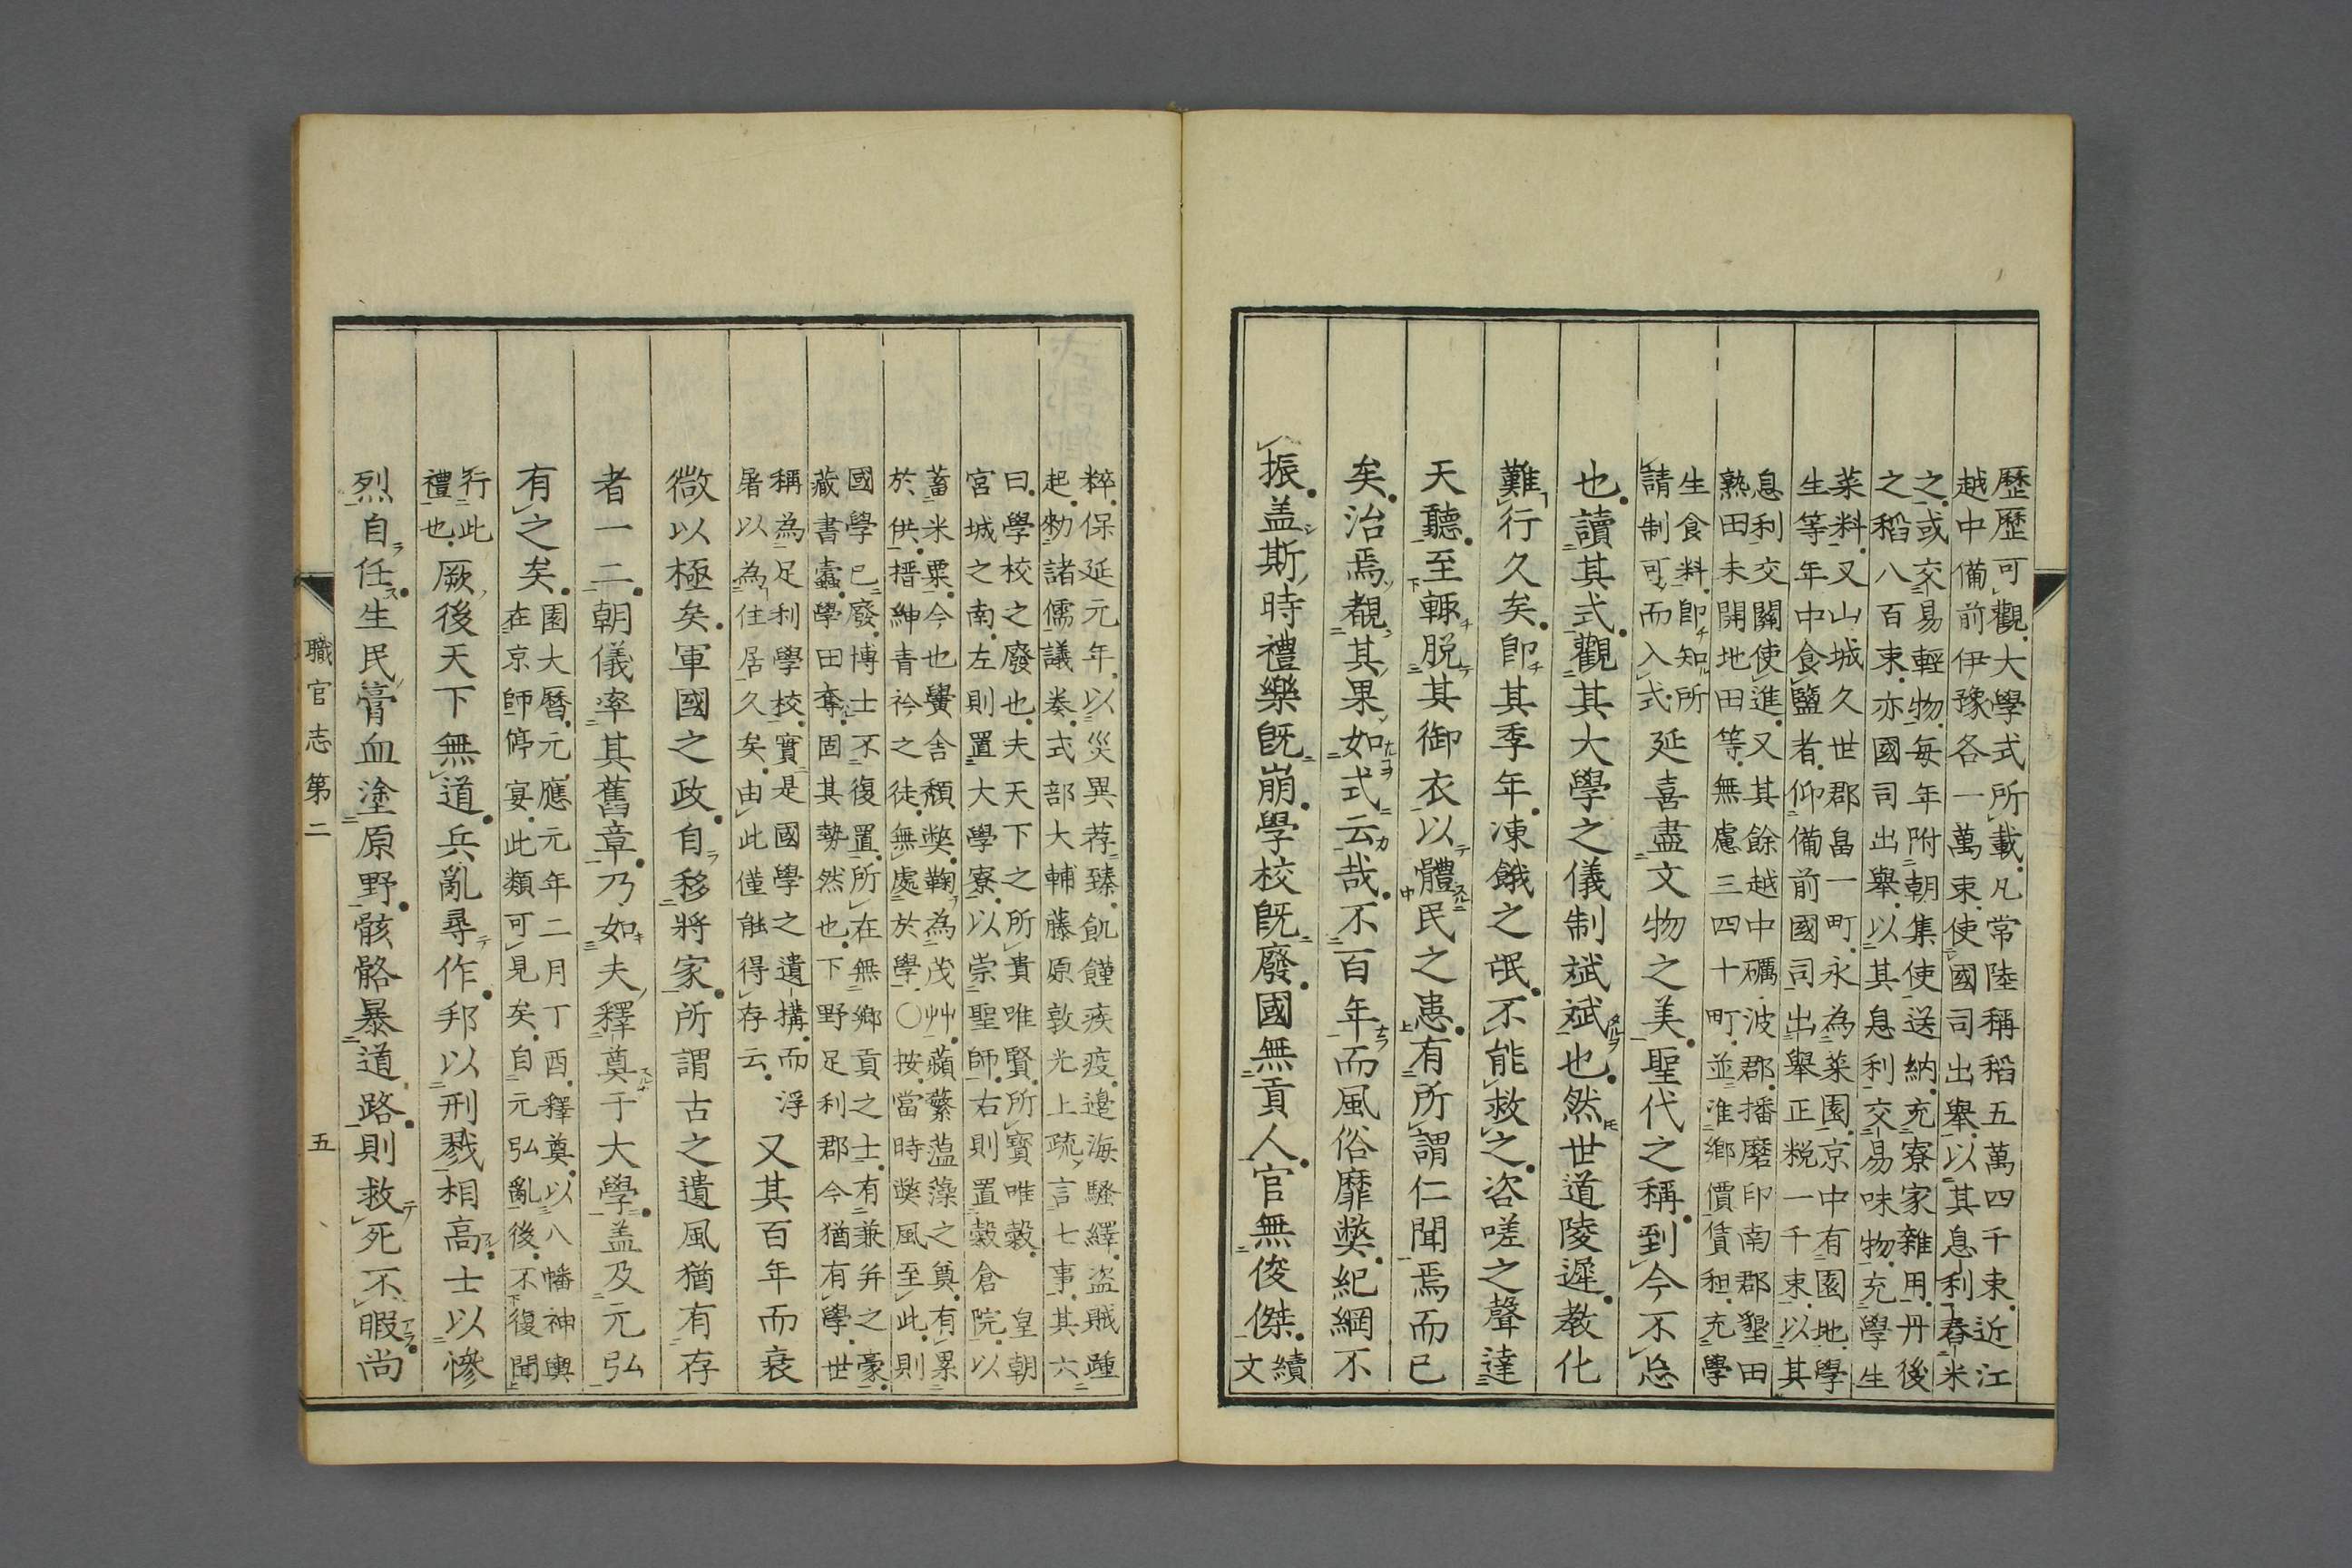 歷歷可觀大學式所載凡常陸稱稻五萬四千束近江
越中備前伊豫各一萬束使國司出舉以其息利舂米
之或交易輕物每年附朝集使送納充寮家雜用丹後
之稻八百束亦國司出舉以其息利交易味物充學生
菜料又山城久世郡畠一町永為菜園京中有園地學
生等年中食鹽者仰備前國司出舉正稅一千束以其
息利交關使進又其餘越中礪波郡播磨印南郡墾田
熟田未開地田等無慮三四十町並准鄉價賃租充學
生食料卽知所
請制可而入式
延喜盡文物之美聖代之稱到今不忘
也讀其式觀其大學之儀制斌斌也然世道陵遲教化
難行久矣卽其季年凍餓之氓不能救之咨嗟之聲達
天聽至輙脱其御衣以體民之患有所謂仁聞焉而已
矣治焉覩其果如式云哉不百年而風俗靡弊紀綱不
振盖斯時禮樂旣崩學校旣廢國無貢人官無俊傑
續
文
粹保延元年以災異荐臻飢饉疾疫邉海騷繹盗賊踵
起勑諸儒議奏式部大輔藤原敦光上疏言七事其六
曰學校之廢也夫天下之所貴唯賢所寶唯穀 皇朝
宮城之南左則置大學寮以崇聖師右則置穀倉院以
蓄米粟今也黌舍頹弊鞠為茂艸蘋蘩薀藻之奠有累
於供搢紳青衿之徒無處於學〇按當時弊風至此則
國學已廢博士不復置所在無鄉貢之士有兼并之豪
藏書蠧學田奪固其勢然也下野足利郡今猶有學世
稱為足利學校實是國學之遺搆而浮
屠以為住居久矣由此僅能得存云
又其百年而衰
微以極矣軍國之政自移將家所謂古之遺風猶有存
者一二朝儀率其舊章乃如夫釋奠于大學盖及元弘
有之矣
園大曆元應元年二月丁酉釋奠以八幡神輿
在京師停宴此類可見矣自元弘亂後不復聞
行此
禮也
厥後天下無道兵亂尋作邦以刑戮相高士以慘
烈自任生民膏血塗原野骸骼暴道路則救死不暇尚
職官志第二
五